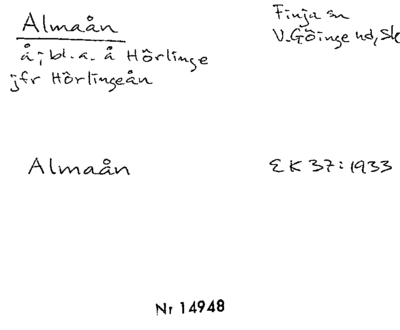 Almaån
Finja sn
V. Göinge hd, Sk
å; bl. a. å Hörlinge
jfr Hörlingeån
Almaån
EK 37:1933
Nr 14948